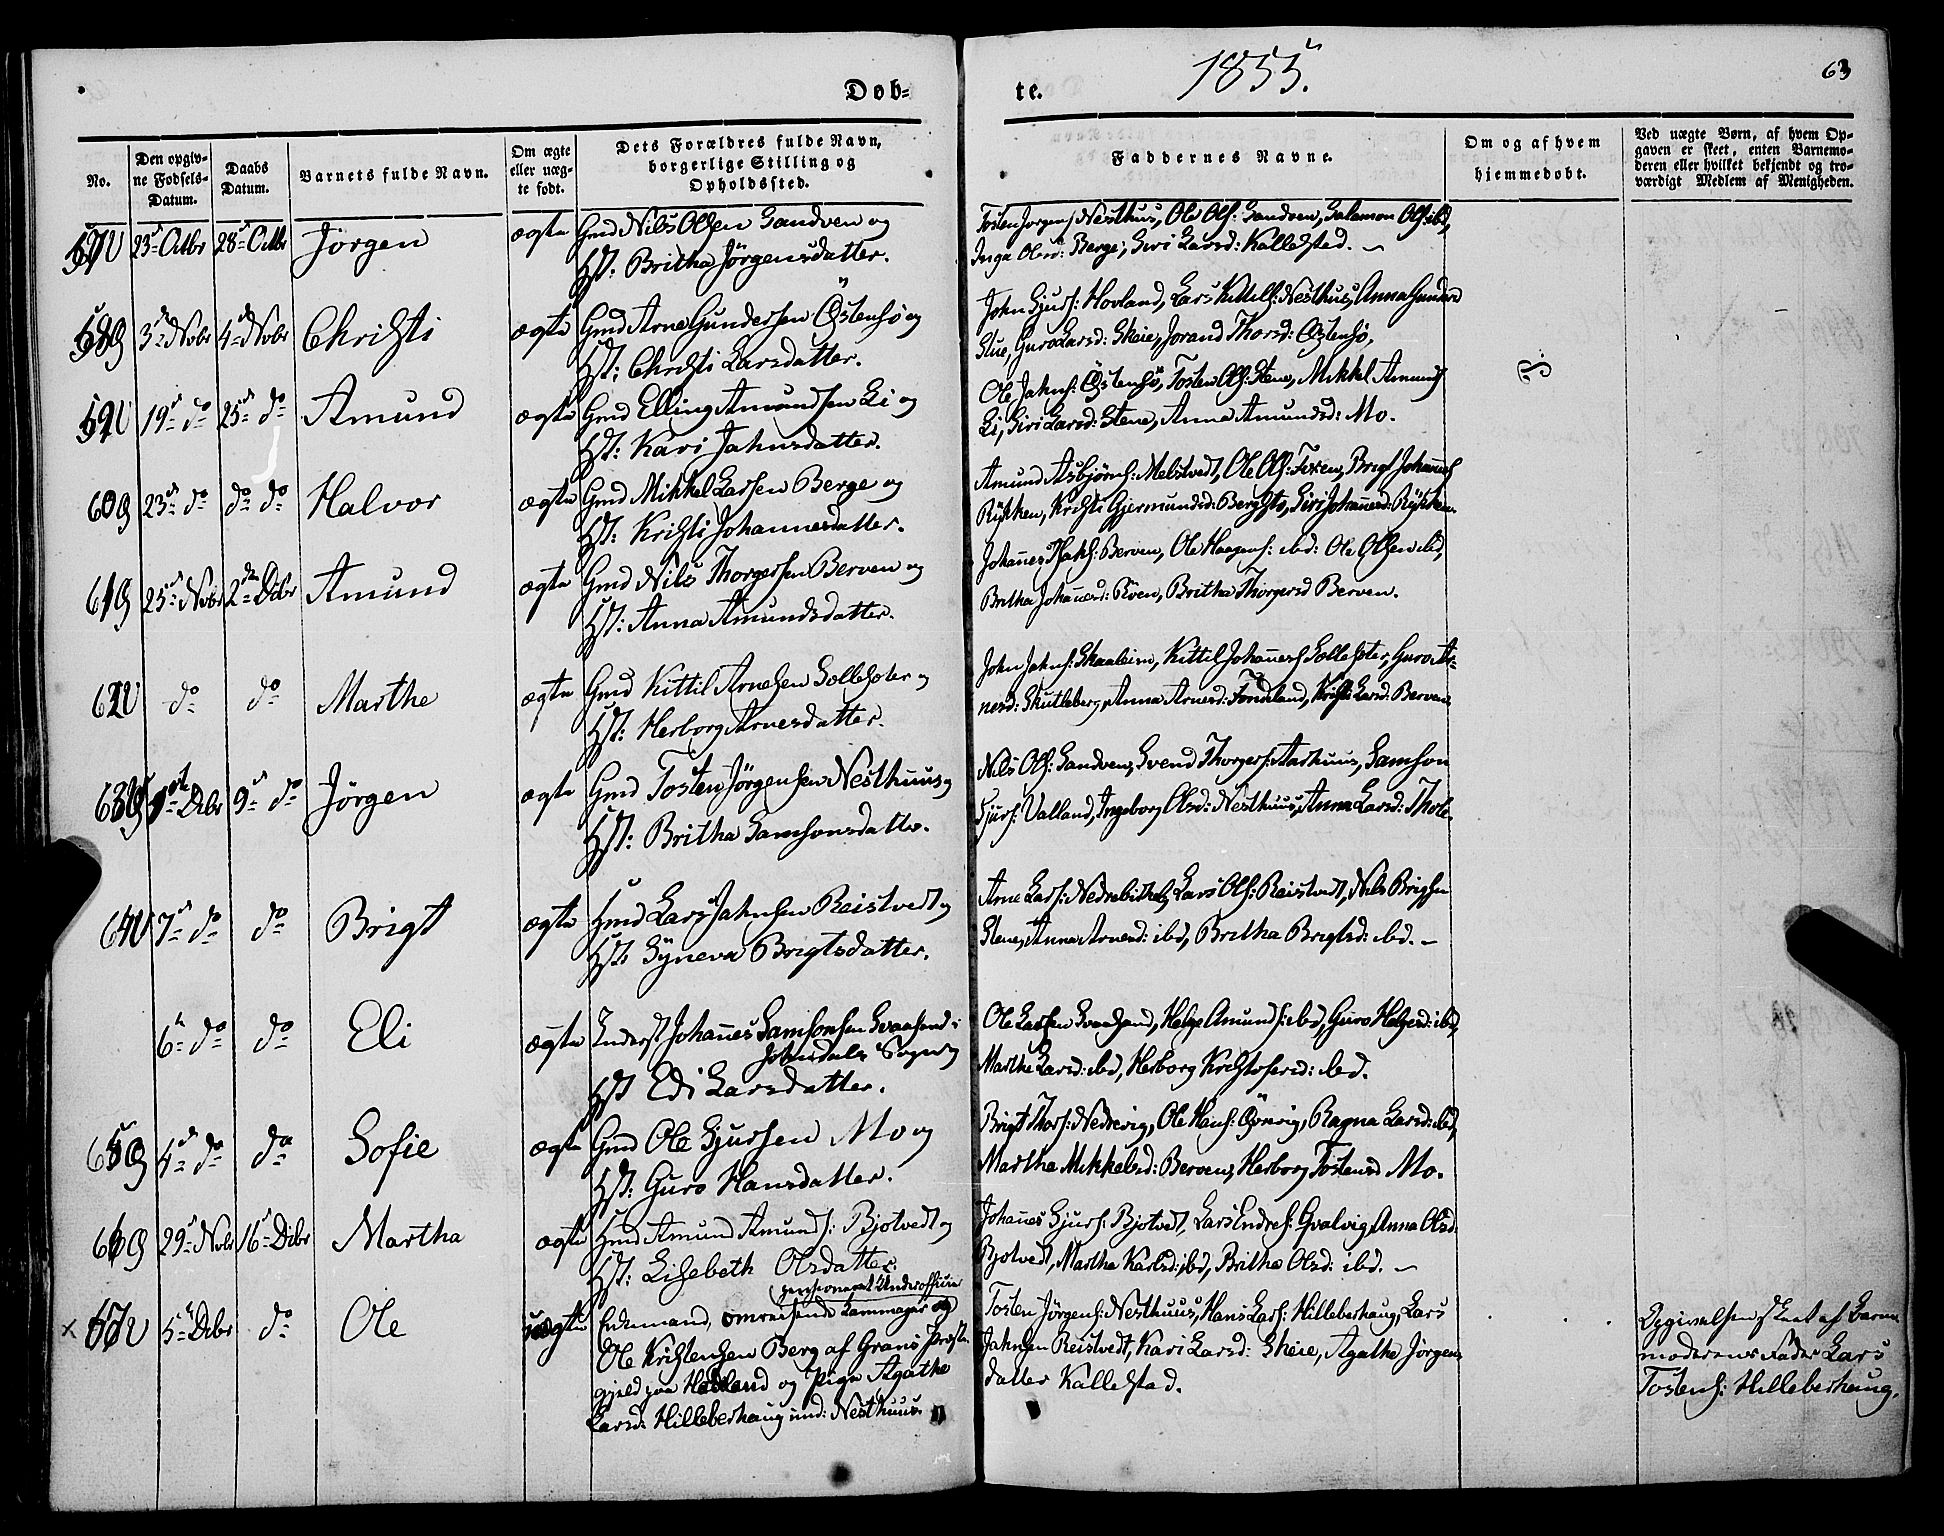 Døb-
te.
1855.
63
No.
Den opgiv-
ne Fødsels-
Datum.
Daabs
Datum.
Barnets fulde Navn.
Om ægte
eller uæg-
te født.
Dets Forældres fulde Navn,
borgerlige Stilling og
Opholdssted.
Faddernes Navne.
Om og af hvem
hjemmedøbt.
Ved uægte Børn, af hvem Op-
gaven er skeet, enten Barnemo-
deren eller hvilket bekjendt og tro-
værdigt Medlem af Menigheden.
23de Octbr 28de Octbr Jörgen ægte Gmd Nils Olsen Sandven og
Hst: Britha Jörgensdatter.
Tosten Jörgens Nesthus, Ole Ols: Sandven, Salamon Ols: ibd,
Inga Olsd: Berge, Siri Larsd: Kallestad.
3de Novbr 4de Novbr Christi ægte Gmd Arne Gundersen Östensö og
Hst: Christi Larsdatter.
John Sjurs: Hovland, Lars Kittils: Nesthus, Anna Gunders
Stue, Guro Larsd: Skeie, Jorand Thorsd: Östensö.
19de do 25de do Amund ægte Gmd Elling Amundsen Li og
Hst: Kari Jahnsdatter.
Ole Jahns: Östensö, Tosten Ols: Stene, Mikkel Amunds
Li, Siri Larsd: Stene, Anna Amundsd: Mo.
60 23de do do do Halvor ægte Gmd Mikkel Larsen Berge og
Hst: Kristi Johannesdatter.
Amund Asbjörns: Melstvedt, Ole Ols: Brigt Johannes
Rykken, Kristi Gjermundsd: Siri Johannesd: Rykken.
61 25de Novbr 2den Decbr Amund ægte Gmd Nils Thorgersen Berven og
Hst: Anna Amundsdatter.
Johannes Berven, Ole Haagens: ibd: Ole Olsen ibd,
Britha Johannesd: Röen, Britha Thorgersd Berven.
62 do do Marthe ægte Gmd Kittil Arnesen Solleseter og
Hst: Herborg Arnesdatter.
John Jahns: Skaaleim, Kittil Johannes Solleseter, Guro Ar-
nesd: Skutleberg, Anna Arnesd: Larsd: Berven.
63 1ste Decbr 9de do Jörgen ægte Gmd Tosten Jörgensen Nesthuus og
Hst: Britha Samsonsdatter.
Nils Ols: Sandven, Svend Thorgers: Aarhuus, Samson
Sjurs: Valland, Ingeborg Olsd: Nesthuus, Anna Larsd:
64 7de do do Brigt ægte Hmd Lars Jahnsen Reistvedt og
Hst: Syneva Brigtsdatter.
Arne Lars: Lars Ols: Reistvedt, Nils Brigtsen
Stene, Anna Arnesd: ibd, Britha Brigtsd: ibd.
6te do do Eli ægte Inderst Johannes Samsonsen Svaasand i
Jondals Sogn og
Hst Edi Larsdatter.
Ole Larsen Svaasand, Helge Amunds: ibd, Guro Helgesd: ibd,
Marthe Larsd: ibd, Herborg Kristofersd: ibd.
65 4de do do Sofie ægte Gmd Ole Sjursen Mo og
Hst: Guro Hansdatter.
Brigt Thors: Nedrevig, Ole Hans: Ragna Larsd: ibd,
Martha Mikkelsd: Berven, Herborg Tostensd Mo.
66 29de Novbr 16de Decbr Martha ægte Hmd Amund Amunds: Bjotvedt og
Hst: Lisebeth Olsdatter.
Johannes Sjurs: Bjotvedt, Lars Endres: Gvalvig, Anna Olsd
Bjotvedt, Martha Karlsd: ibd, Britha Olsd: ibd.
× 67 5te Decbr do Ole uægte pensioneret Underofficier
Enkemand, omreisende Kammager
Ole Kristensen Berg af Grans Præste-
gjeld paa Hadeland og Pige Agathe
Larsd: Hilleberhaug ind: Nesthuus.
Tosten Jörgens: Nesthuus, Hans Lars: Hilleberhaug, Lars
Jahnsen Reistvedt, Kari Larsd: Skeie, Agathe Jörgens-
datter Kallestad.
Opgivelsen skeet af Barne-
moderens Fader Lars
Tostens: Hilleberhaug.